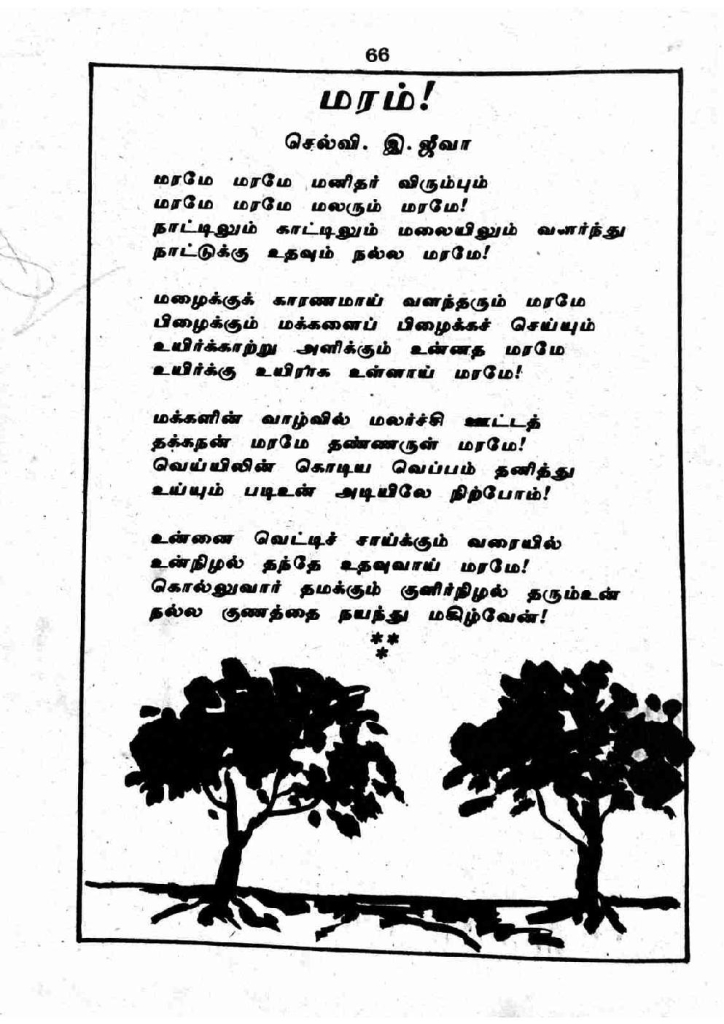 66
மரம்!
செல்வி. இ. ஜீவா
மரமே மரமே மனிதர் விரும்பும்
மரமே மரமே மலரும் மரமே!
நாட்டிலும் காட்டிலும் மலையிலும் வளர்ந்து
நாட்டுக்கு உதவும் நல்ல மரமே!
மழைக்குக் காரணமாய் வளந்தரும் மரமே
பிழைக்கும் மக்களைப் பிழைக்கச் செய்யும்
உயிர்க்காற்று அளிக்கும் உன்னத மரமே
உயிர்க்கு உயிராக உள்ளாய் மரமே!
மக்களின் வாழ்வில் மலர்ச்சி ஊட்டத்
தக்கநன் மரமே தண்ணருள் மரமே!
வெய்யிலின் கொடிய வெப்பம் தனித்து
உய்யும் படிஉன் அடியிலே நிற்போம்!
உன்னை வெட்டிச் சாய்க்கும் வரையில்
உன்நிழல் தந்தே உதவுவாய் மரமே!
கொல்லுவார் தமக்கும் குளிர்நிழல் தரும்உன்
நல்ல குணத்தை நயந்து மகிழ்வேன்!